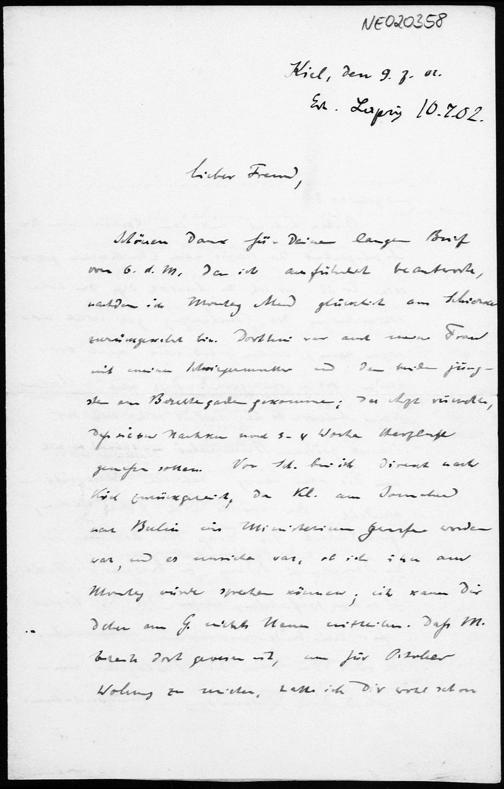 NE020358
Kiel, den 9. 7. 02.
Erh. Leipzig 10.7.02.
Lieber Freund,
Schönen Dank für Deinen langen Brief
vom 6. d. M., den ich ausführlich beantworte,
nachdem ich Montag Abend glücklich aus Schierke
zurückgekehrt bin. Dorthin war auch meine Frau
mit meiner Schwiegermutter und den beiden jüng-
sten aus Berchtesgaden gekommen; der Arzt
noch 3-4 Woche
sollten. Von Sch. bin ich direkt nach
Kiel zurückgereist, da Kl. am Sonnabend
nach Berlin ins Ministerium gerufen worden
war, und es war, ob ich ihn am
Montag würde sprechen können; ich kann Dir
daher aus G. nichts Neues mitteilen. Daß M.
bereits dort gewesen ist, um für October
Wohnung zu mieten, hatte ich Dir wohl schon